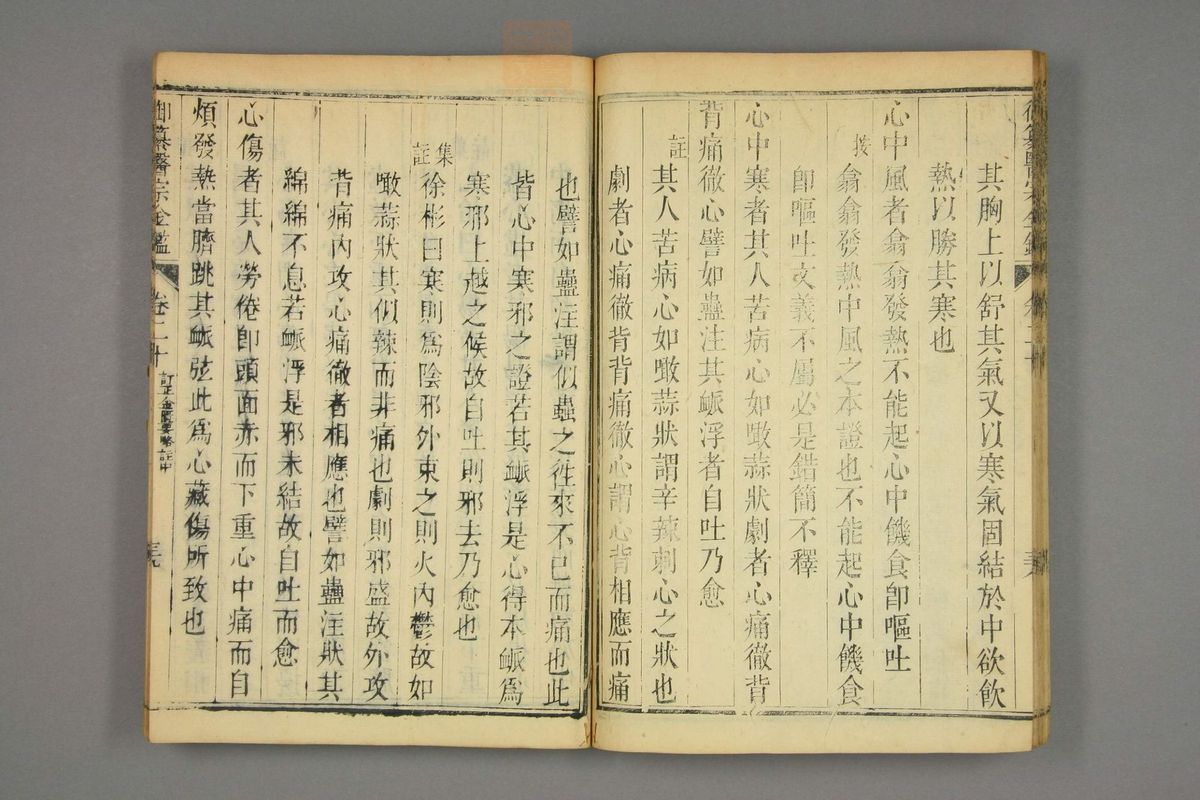 其胸上以舒其氣又以寒氣固結於中欲飲
熱以勝其寒也
心中風者翕翕發熱不能起心中饑食卽嘔吐
按 翕翕發熱中風之本證也不能起心中饑食
卽嘔吐文義不屬必是錯簡不釋
心中寒者其人苦病心如噉蒜狀劇者心痛徹背
背痛徹心譬如蠱注其脈浮者自吐乃愈
註 其人苦病心如噉蒜狀謂辛辣刺心之狀也
劇者心痛徹背背痛徹心謂心背相應而痛
也譬如蠱注謂似蟲之徃來不已而痛也此
皆心中寒邪之證若其脈浮是心得本脈爲
寒邪上越之候故自吐則邪去乃愈也
集註 徐彬曰寒則爲陰邪外束之則火內鬱故如
噉蒜狀其似辣而非痛也劇則邪盛故外攻
背痛內攻心痛徹者相應也譬如蠱注狀其
綿綿不息若脈浮是邪未結故自吐而愈
心傷者其人勞倦卽頭面赤而下重心中痛而自
煩發熱當臍跳其脈弦此爲心藏傷所致也
御纂醫宗金鑑 卷二十 訂正金匱要略註中